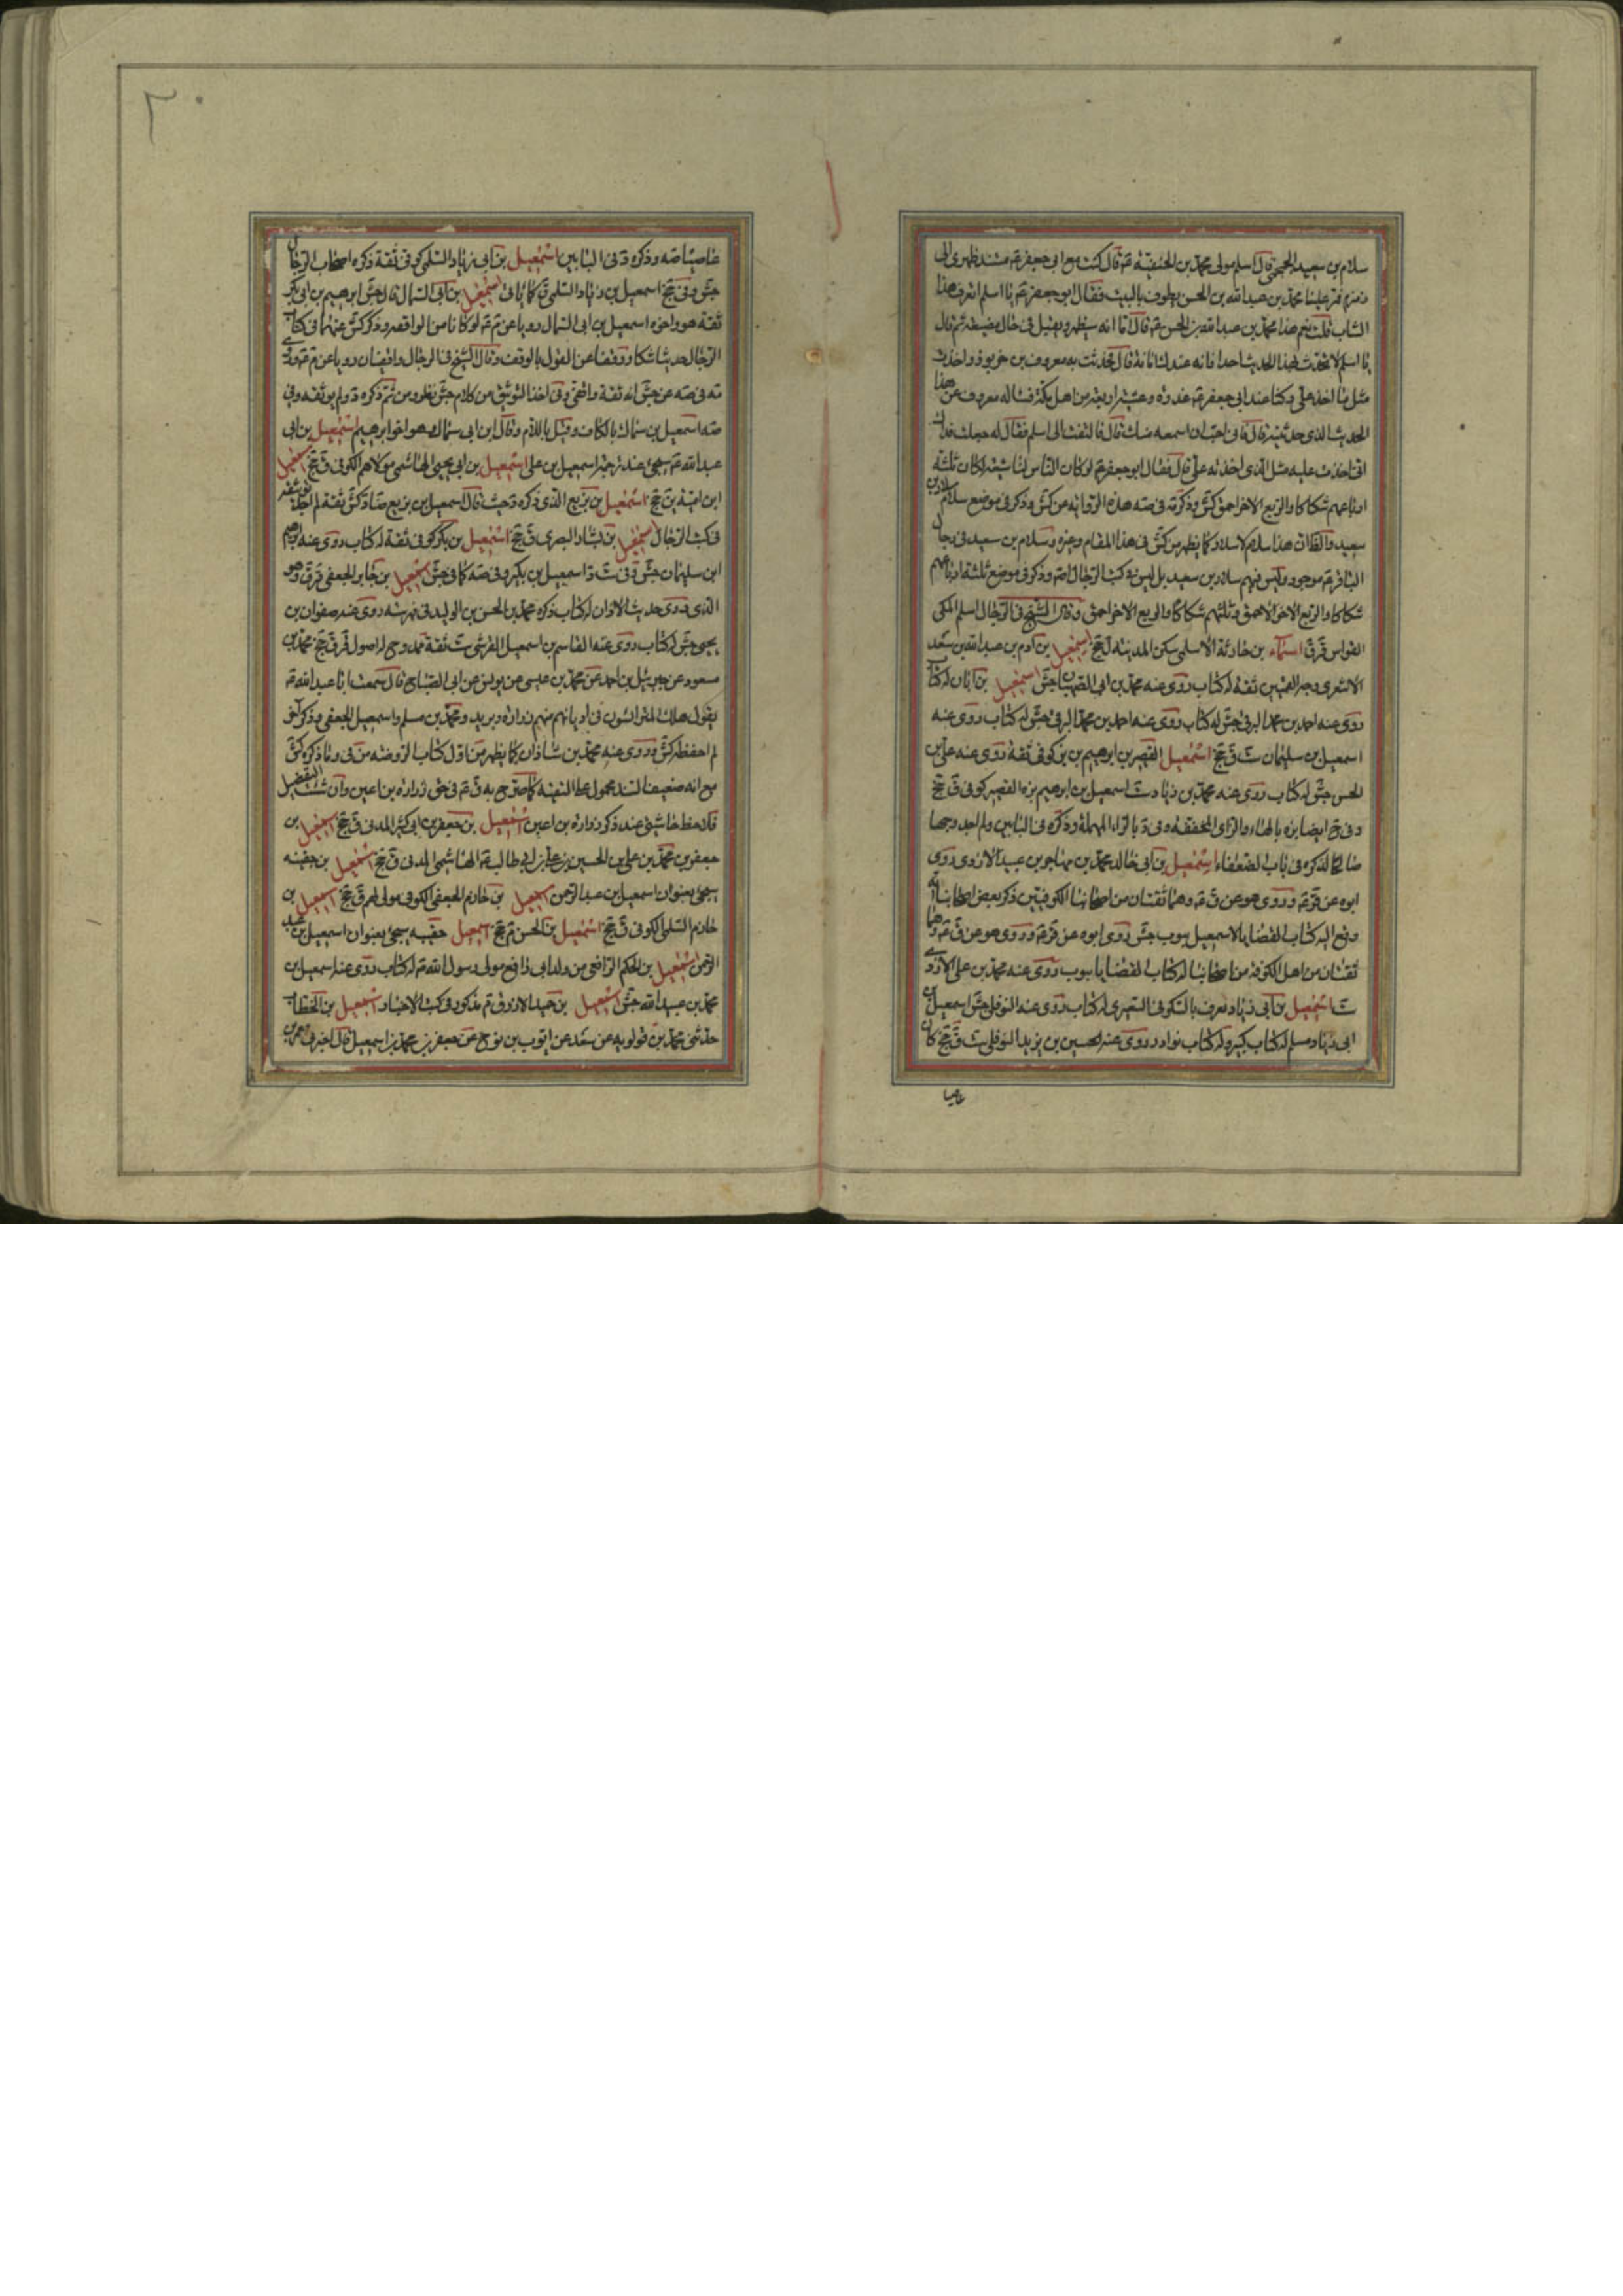 سلام بن سعيد الجمحى قال اسلم مولى محمد بن الحنفية عم قال كنت مع ابى جعفر عم مسند ظهرى الى
زمزم فمر علينا محمد بن عبد الله بن الحسن يطوف بالبيت فقال ابو جعفر عم يا اسلم اتعرف هذا
الشاب قلت نعم هذا محمد بن عبد الله بن الحسن عم قال اما انه سيظهر ويقتل فى حال مضيعة ثم قال
يا اسلم لا تحدث بهذا الحديث احدا فانه عندك امانة قال فحدثت به معروف بن خربوذ واخذت
مثل ما اخذ على وكنا عند ابى جعفر عم غدوة وعشية اربعة من اهل مكة فساله معروف عن هذا
الحديث الذى حدثنيه قال فانى احب ان اسمعه منك قال فالتفت الى اسلم فقال له جعلت فداك
انى اخذت عليه مثل الذى اخذته على قال فقال ابو جعفر عم لو كان الناس لنا شيعة لكان ثلثة
ارباعهم شكاكا والربع الاخر احمق كش وذكرته فى صه هذه الرواية من كش وذكر فى موضع سلام بن
سعيد
الباقر عم موجود وليس فيهم سلار بن سعيد بل ليس فى كتب الرجال اصه وذكر فى موضع ثلثة ارباعهم
شكاكا والربع الاخر الاحمق وثلثهم شكاكا والربع الاخر احمق وقال الشيخ فى الرجال اسلم المكى
القواس قر ق اسماء بن حارثة الاسلمى سكن المدينة ل جخ اسمعيل بن آدم بن عبد الله بن سعد
الاشعرى وجه القميين ثقة له كتاب روى عنه محمد بن ابى الصهبان جش اسمعيل بن ابان له كتاب
روى عنه احمد بن محمد البرقى جش له كتاب روى عنه احمد بن محمد البرقى جش له كتاب روى عنه
اسمعيل بن سليمان ست ق جخ اسمعيل القصير بن ابرهيم بن بز كوفى ثقة روى عنه على بن
الحسن جش له كتاب روى عنه محمد بن زياد ست اسمعيل بن ابرهيم بزه القصير كوفى ق جخ
وفى ح ايضا بزه بالهاء والزاى المخففة وفى د بالراء المهملة وذكره فى البابين ولم اجد وجها
صالحا لذكره فى باب الضعفاء اسمعيل بن ابى خالد محمد بن مهاجر بن عبيد الازدى روى
ابوه عن قر عم وروى هو عن ق عم وهما ثقتان من اصحابنا الكوفيين ذكر بعض اصحابنا انه
وقع اليه كتاب القضايا لاسمعيل مبوب جش روى ابوه عن قر عم وروى هو عن ق عم وهما
ثقتان من اهل الكوفة من اصحابنا له كتاب القضايا مبوب روى عنه محمد بن على الازدى
ست اسمعيل بن ابى زياد يعرف بالسكونى الشعيرى له كتاب روى عنه النوفلى جش اسمعيل بن
ابى زياد مسلم له كتاب كبير وله كتاب نوادر روى عنه الحسين بن يزيد النوفلى ست ق جخ كان
عاميا
٢٠
عاميا صه وذكره د فى البابين اسمعيل بن ابى زياد السلمى كوفى ثقة ذكره اصحاب الرجال
جش وفى جخ اسمعيل بن زياد السلمى ق كما ياتى اسمعيل بن ابى السمال قال جش ابرهيم بن ابى بكر
ثقة هو واخوه اسمعيل بن ابى السمال رويا عن م عم لو كانا من الواقفه وذكر كش عنهما فى كتاب
الرجال حديثا شكا ووقفا عن القول بالوقف وقال الشيخ فى الرجال واقفيان رويا عن م عم
صه اسمعيل بن سماك بالكاف وقيل باللام وقال ابن ابى سماك هو اخو ابرهيم اسمعيل بن ابى
عبد الله عم سيجئ عند ترجمة اسمعيل بن على اسمعيل بن ابى يحيى الهاشمى مولاهم الكوفى ق جخ اسمعيل
ابن امية ين جخ اسمعيل بن بزيع الذى ذكره د حيث قال اسمعيل بن بزيع ضا د كش ثقة لم اجده
فى كتب الرجال اسمعيل بن بشار البصرى ق جخ اسمعيل بن بكر كوفى ثقة له كتاب روى عنه ابرهيم
ابن سليمان جش د فى ست د اسمعيل بن بكير وفى صه كما فى جش اسمعيل بن جابر الجعفى قر ق وهو
الذى روى حديث الاذان له كتاب ذكره محمد بن الحسن بن الوليد فى فهرسته روى عنه صفوان بن
يحيى جش له كتاب روى عنه القاسم بن اسمعيل القرشى ست ثقة ممدوح له اصول قر ق جخ محمد بن
مسعود عن جبرئيل بن احمد عن محمد بن عيسى عن يونس عن ابى الصباح قال سمعت ابا عبد الله عم
يقول هلك المتراسون فى اديانهم منهم زرارة وبريد ومحمد بن مسلم واسمعيل الجعفى وذكر آخر
لم احفظه كش وروى عنه محمد بن سنان كما يظهر من اول كتاب الروضة من فى وما ذكره كش
مع انه ضعيف السند محمول على التقية كما صرح به ق عم فى حق زرارة بن اعين وان شئت التفصيل
فلاحظ حاشيتى عند ذكر زرارة بن اعين اسمعيل بن جعفر بن ابى كثير المدنى ق جخ اسمعيل بن
جعفر بن محمد بن على بن الحسين بن على بن ابى طالب عم الهاشمى المدنى ق جخ اسمعيل بن جفينه
سيجئ بعنوان اسمعيل بن عبد الرحمن اسمعيل بن حازم الجعفى الكوفى مولى لهم ق جخ اسمعيل بن
حازم السلمى الكوفى ق جخ اسمعيل بن الحسن م جخ اسمعيل حقيبه سيجئ بعنوان اسمعيل بن عبد
الرحمن اسمعيل بن الحكم الرافعى من ولد ابى رافع مولى رسول الله عم له كتاب روى عنه اسمعيل بن
محمد بن عبيد الله جش اسمعيل بن حميد الازرق م مذكور فى كتب الاخبار اسمعيل بن الخطاب
حدثنى محمد بن قولويه عن سعد عن ايوب بن نوح عن جعفر بن محمد بن اسمعيل قال اخبرنى معمر بن